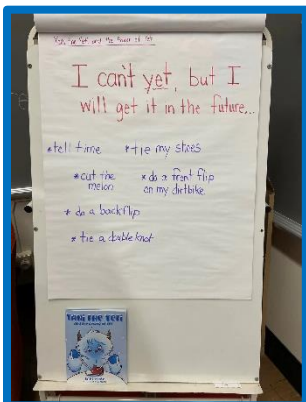 I can't yet, but I
will get it in the future...
*tell time *tie my shoes
*cut the melon
*do a front flip on my dirtbike
*do a backflip
*tie a double knot
Yeti